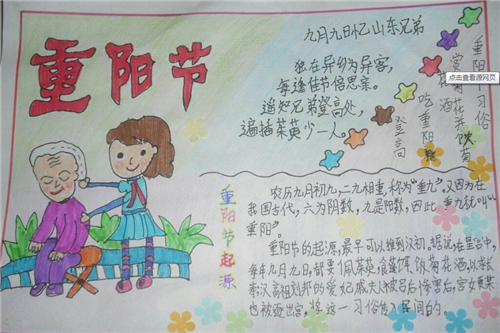 重阳节
九月九日忆山东兄弟
独在异乡为异客,
每逢佳节倍思亲。
遥知兄弟登高处,
遍插茱萸少一人。
重阳
习俗
赏
花并饮菊
花酒
吃重阳
登高
点击查看源网页
重阳节起源
农历九月初九,二九相重,称为"重九"。又因为在
我国古代,六为阴数,九是阳数,因此"重九就叫"
重阳"。
重阳节的起源,最早可以推到汉初。据说,在皇宫中,
每年九月九日,都要佩茱萸,食蓬饵,饮菊花酒,以求长
寿。汉高祖刘邦的爱妃戚夫人被吕后惨害后,宫女贾某
也被逐出宫,将这一习俗传入民间的。